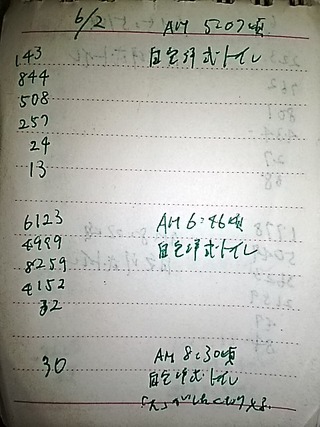 6/2 AM 5:07頃
143 自宅洋式トイレ
844
508
257
24
13
6123 AM 6:46頃
4999 自宅洋式トイレ
8259
4152
32
30 AM 8:30頃
自宅洋式トイレ